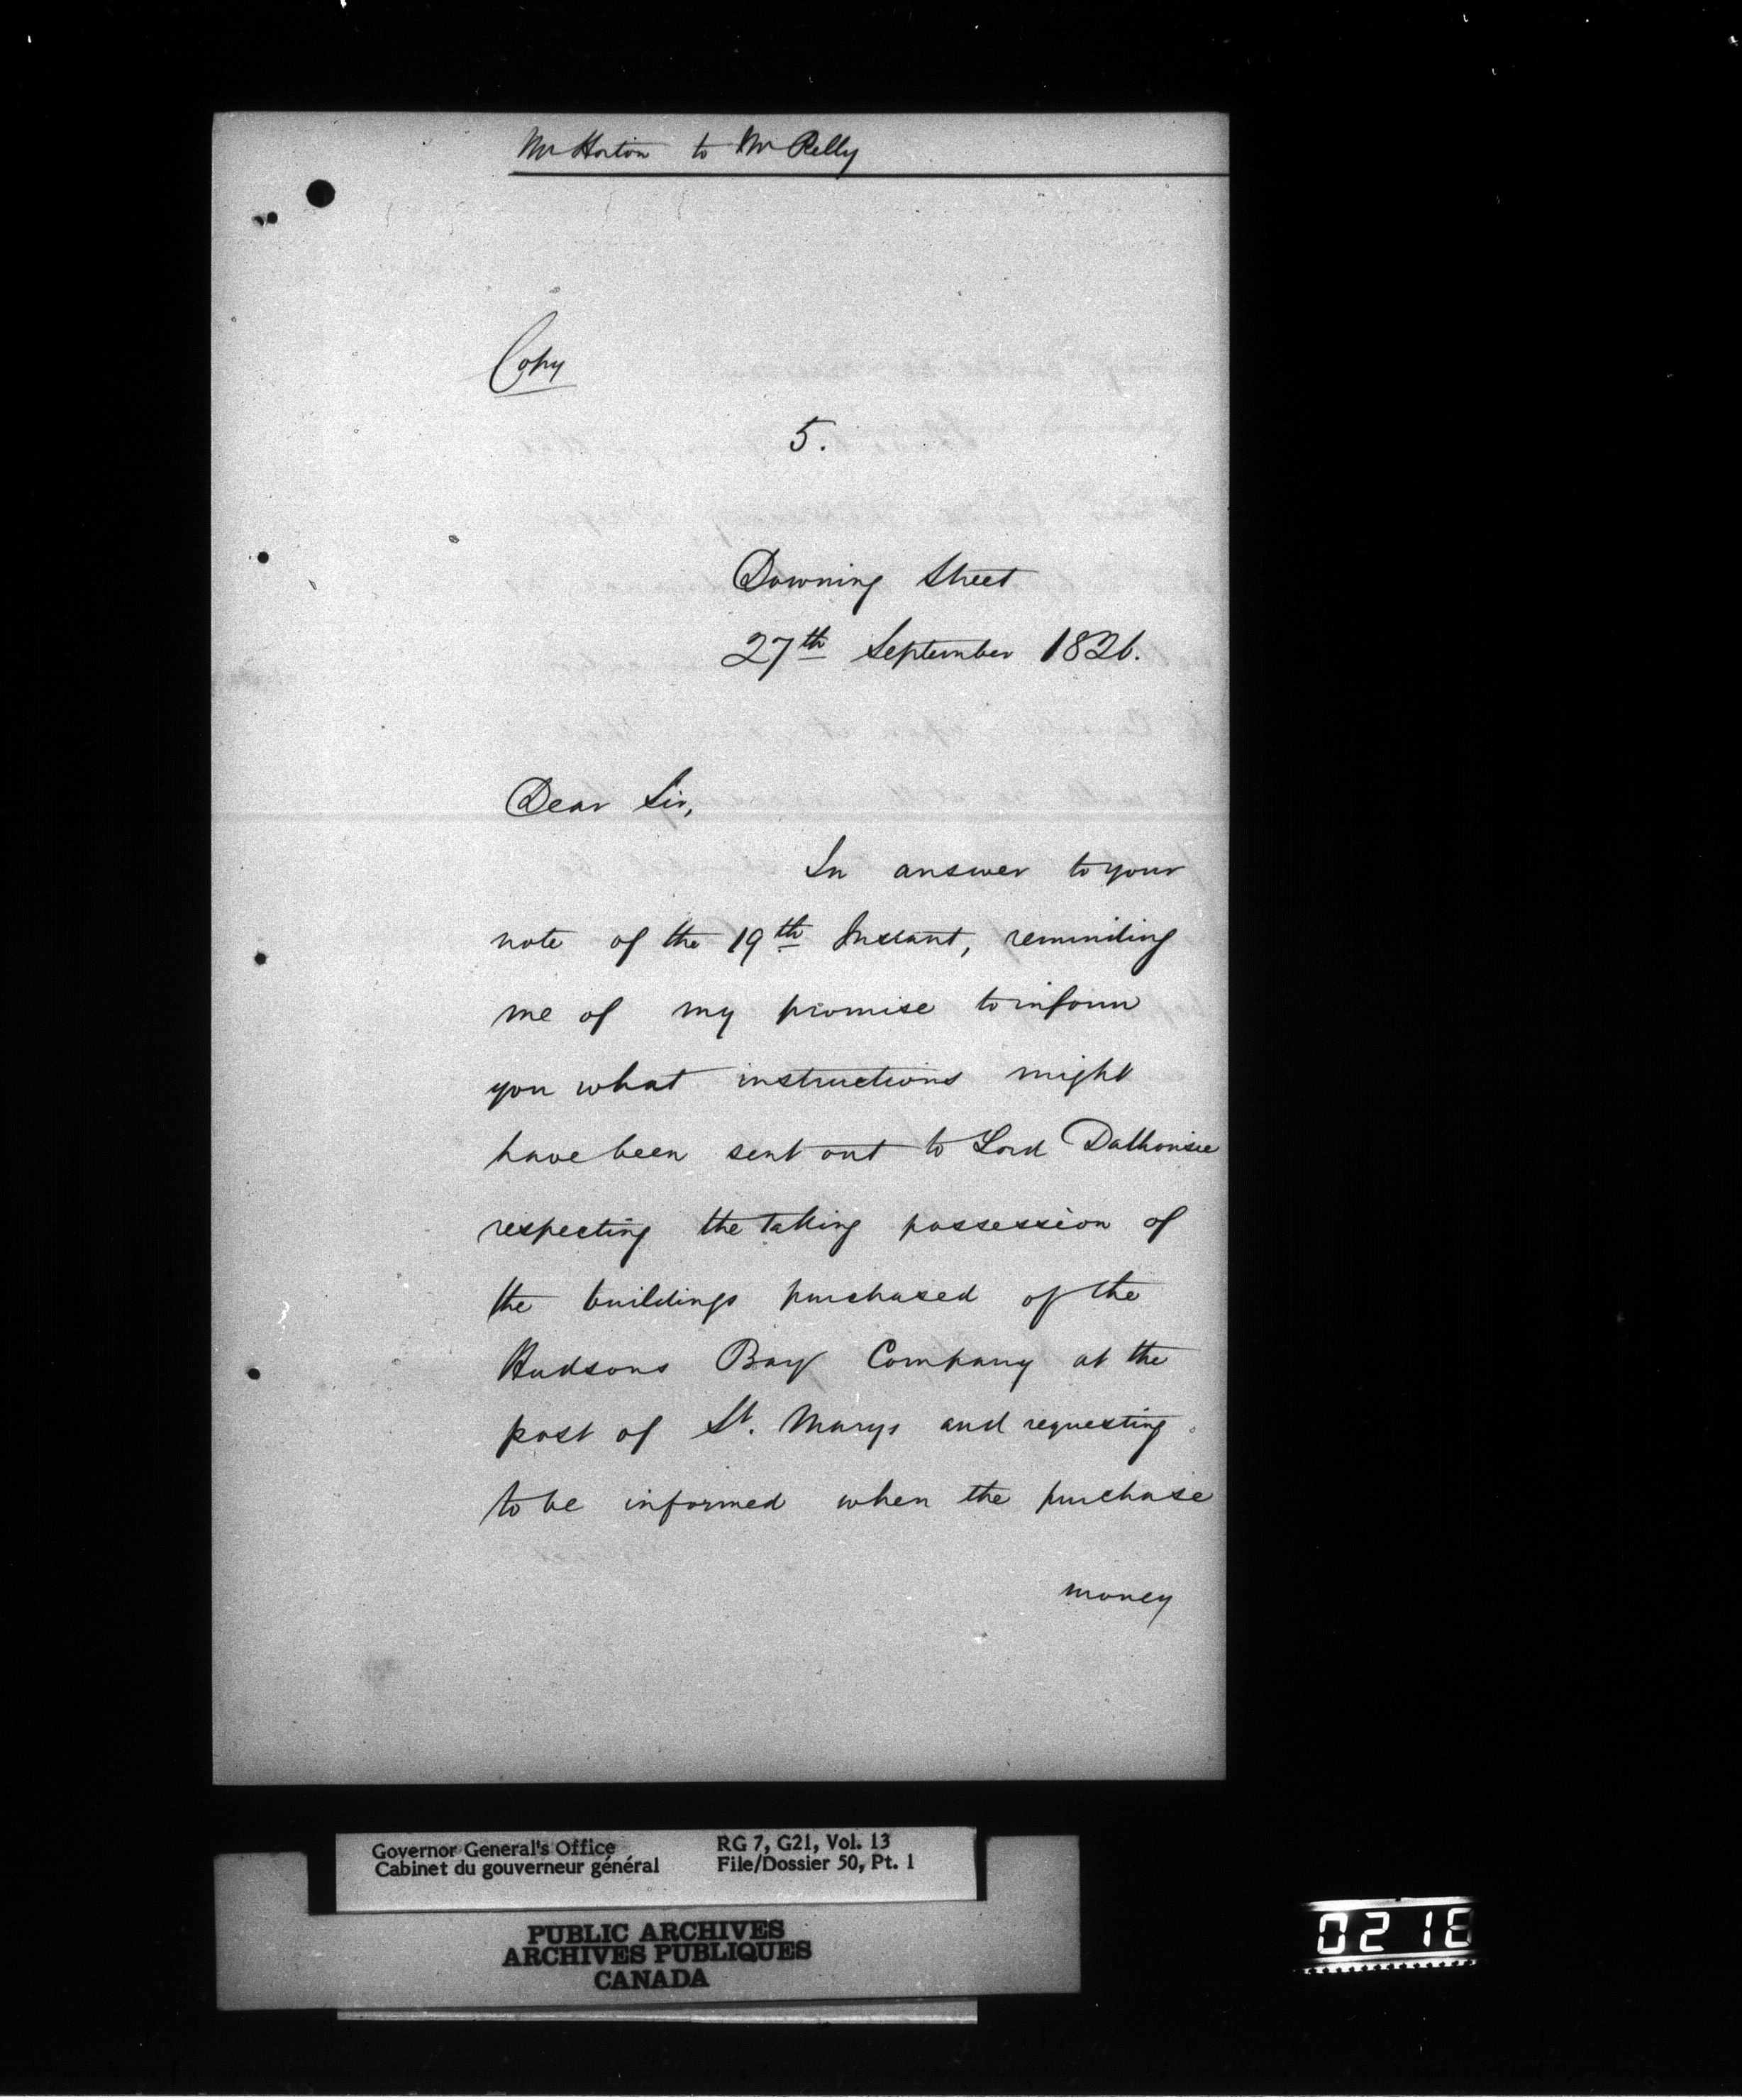 Mr Horton to Mr Pelly
Copy
5.
Downing Street
27th September 1826.
Dear Sir,
In answer to your
note of the 19th Instant, reminding
me of my promise to inform
you what instructions might
have been sent out to Lord Dalhousie
respecting the taking possession of
the buildings purchased of the
Hudsons Bay Company at the
post of St. Marys and requesting
to be informed when the purchase
money
Governor General's Office
Cabinet du gouverneur général
RG 7, G21, Vol. 13
File/Dossier 50, Pt. 1
PUBLIC ARCHIVES
ARCHIVES PUBLIQUES
CANADA